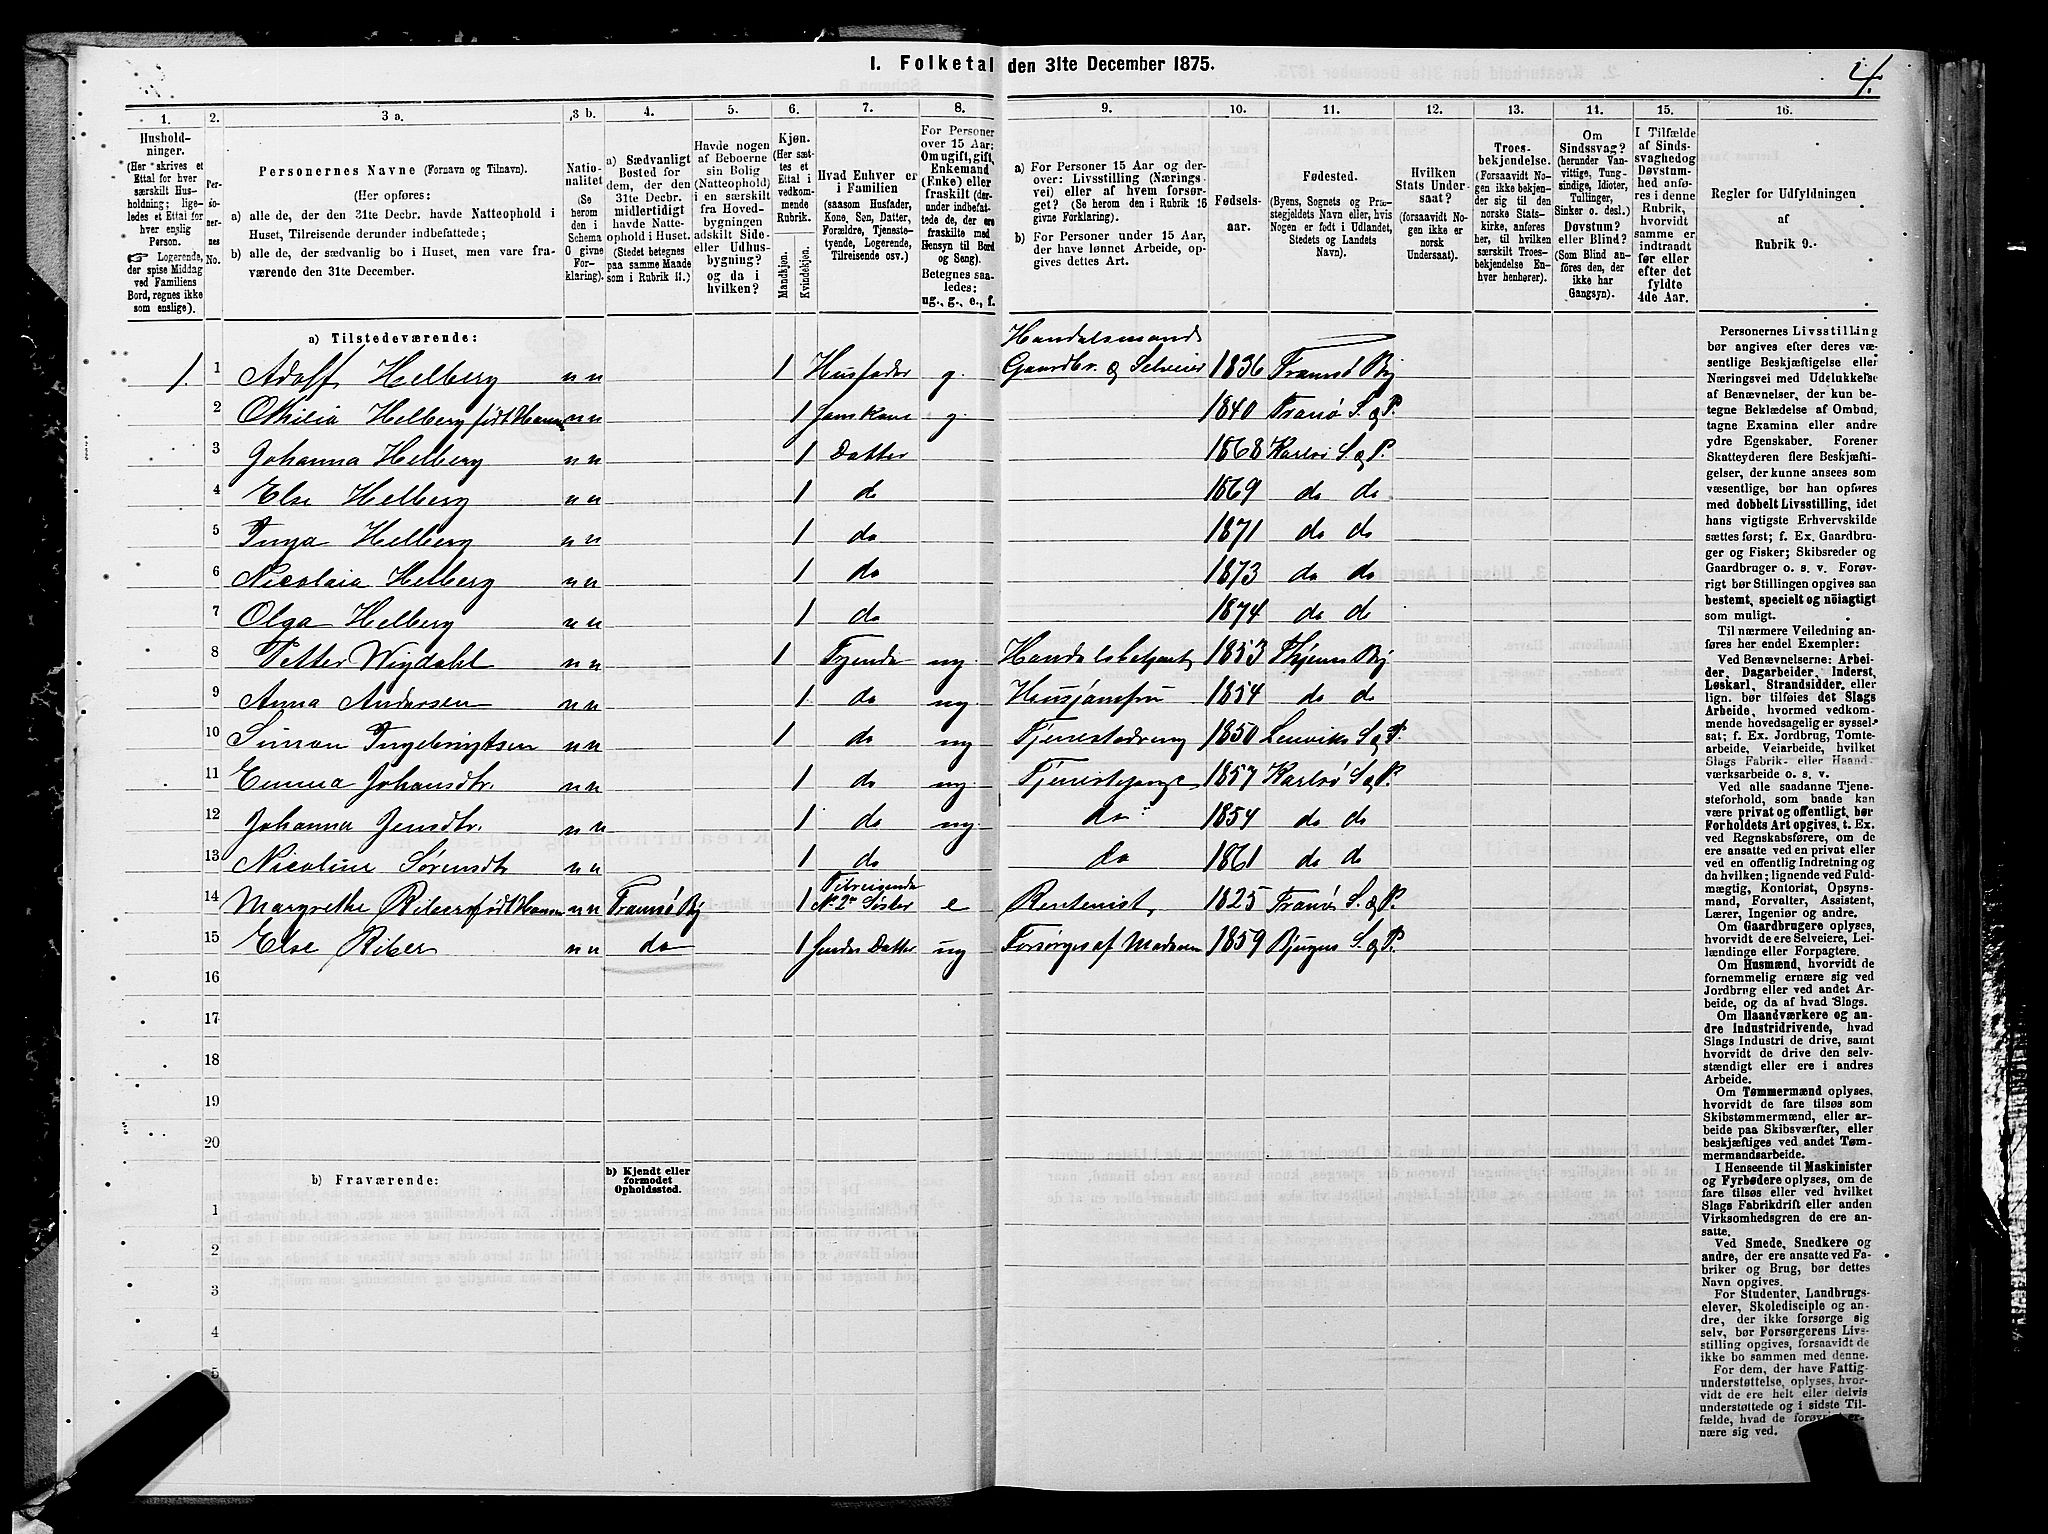 I. Folketal den 31te December 1875.
4.
1. 2. 3 a. 3 b. 4. 5. 6. 7. 8. 9. 10. 11. 12. 13. 14. 15. 16.
Hushold-
ninger.
(Her skrives et
Ettal for hver
særskilt Hus-
holdning; lige-
ledes et Ettal for
hver enslig
Person.
☞ Logerende,
der spise Middag
ved Familiens
Bord, regnes ikke
som enslige).
Per-
so-
ner-
nes
No.
Personernes Navne (Fornavn og Tilnavn).
(Her opføres:
a) alle de, der den 31te Decbr. havde Natteophold i
Huset, Tilreisende derunder indbefattede;
b) alle de, der sædvanlig bo i Huset, men vare fra-
værende den 31te December.
Natio-
nalitet
(Se
herom
den i
Schema
O givne
For-
klaring).
a) Sædvanligt
Bosted for
dem, der den
31te Decbr.
midlertidigt
havde Natte-
ophold i Huset.
(Stedet betegnes
paa samme Maade
som i Rubrik 11.)
Havde nogen
af Beboerne
sin Bolig
(Natteophold)
i en særskilt
fra Hoved-
bygningen
adskilt Side-
eller Udhus-
bygning?
og da i
hvilken?
Kjøn.
(Her sæt-
tes et
Ettal i
vedkom-
mende
Rubrik.
Mandkjøn.
Kvindekjøn.
Hvad Enhver er
i Familien
(saasom Husfader,
Kone, Søn, Datter,
Forældre, Tjeneste-
tyende, Logerende,
Tilreisende osv.)
For Personer
over 15 Aar:
Om ugift, gift,
Enkemand
(Enke) eller
fraskilt (der-
under indbefat-
tede de, der ere
fraskilte med
Hensyn til Bord
og Seng).
Betegnes saa-
ledes:
ug., g., e., f.
a) For Personer 15 Aar og der-
over: Livsstilling (Nærings-
vei) eller af hvem forsør-
get? (Se herom den i Rubrik 16
givne Forklaring).
b) For Personer under 15 Aar,
der have lønnet Arbeide, op-
gives dettes Art.
Fødsels-
aar.
Fødested.
(Byens, Sognets og Præ-
stegjeldets Navn eller, hvis
Nogen er født i Udlandet,
Stedets og Landets
Navn).
Hvilken
Stats Under-
saat?
(forsaavidt No-
gen ikke er
norsk
Undersaat).
Troes-
bekjendelse.
(Forsaavidt No-
gen ikke bekjen-
der sig til den
norske Stats-
kirke, anføres
her, til hvilken
særskilt Troes-
bekjendelse En-
hver henhører).
Om
Sindssvag?
(herunder Van-
vittige, Tung-
sindige, Idioter,
Tullinger,
Sinker o. desl.)
Døvstum?
eller Blind?
(Som Blind an-
føres den, der
ikke har
Gangsyn).
I Tilfælde
af Sinds-
svaghed og
Døvstum-
hed anfø-
res i denne
Rubrik,
hvorvidt
samme er
indtraadt
før eller
efter det
fyldte
4de Aar.
Regler for Udfyldningen
af
Rubrik 9.
a) Tilstedeværende:
Handelsmand
1. 1 Adolf Helberg n n 1 Husfader g. Gaardbr. og Selveier 1836 Tromsø By
2 Othilia Helberg født Hansen n n 1 hans Kone g. 1840 Tranø S. og P.
3 Johanna Helberg n n 1 Datter 1868 Karlsø S. og P.
4 Else Helberg n n 1 do 1869 do do
5 Inga Helberg n n 1 do 1871 do do
6 Nicolaia Helberg n n 1 do 1873 do do
7 Olga Helberg n n 1 do 1874 do do
8 Petter Wigdahl n n 1 Tyende ug. Handelsbetjent 1853 Thjems By
9 Anna Andersen n n 1 do ug. Husjomfru 1854 do do
10 Simon Ingebrigtsen n n 1 do ug Tjenestedreng 1850 Lenviks S og P.
11 Emma Johansdtr. n n 1 do ug. Tjenestepige 1857 Karlsø S og P.
12 Johanna Jensdtr. n n 1 do ug. do 1854 do do
13 Nicoline Sørensdtr n n 1 do do 1861 do do
Tilreisende
14 Margrethe Riber født Hansen n n Tromsø By 1 No 2s Søster e Rentenist 1825 Tranø S. og P.
15 Else Riber n n do 1 hendes Datter ug Forsørges af Moderen 1859 Bjugns S. og P.
16
17
18
19
20
b) Fraværende:
b) Kjendt eller
formodet
Opholdssted.
1
2
3
4
5
Personernes Livsstilling
bør angives efter deres væ-
sentlige Beskjæftigelse eller
Næringsvei med Udelukkelse
af Benævnelser, der kun be-
tegne Beklædelse af Ombud,
tagne Examina eller andre
ydre Egenskaber. Forener
Skatteyderen flere Beskjæfti-
gelser, der kunne ansees som
væsentlige, bør han opføres
med dobbelt Livsstilling, idet
hans vigtigste Erhvervskilde
sættes først; f. Ex. Gaardbru-
ger og Fisker; Skibsreder og
Gaardbruger o. s. v. Forøv-
rigt bør Stillingen opgives saa
bestemt, specielt og nöiagtigt
som muligt.
Til nærmere Veiledning an-
føres her endel Exempler:
Ved Benævnelserne: Arbei-
der, Dagarbeider, Inderst,
Løskarl, Strandsidder, eller
lign. bør tilføies det Slags
Arbeide, hvormed vedkom-
mende hovedsagelig er syssel-
sat; f. Ex. Jordbrug, Tomte-
arbeide, Veiarbeide, hvilket
Slags Fabrik- eller Haand-
værksarbeide o. s. v.
Ved alle saadanne Tjene-
steforhold, som baade kan
være privat og offentligt, bør
Forholdets Art opgives, t. Ex.
ved Regnskabsførere, om de
ere ansatte ved en privat eller
ved en offentlig Indretning og
da hvilken; lignende ved Fuld-
mægtig, Kontorist, Opsyns-
mand, Forvalter, Assistent,
Lærer, Ingeniør og andre.
Om Gaardbrugere oplyses,
hvorvidt de ere Selveiere, Lei-
lændinge eller Forpagtere.
Om Husmænd, hvorvidt de
fornemmelig ernære sig ved
Jordbrug eller ved andet Ar-
beide, og da af hvad Slags.
Om Haandværkere og an-
dre Industridrivende, hvad
Slags Industri de drive, samt
hvorvidt de drive den selv-
stændigt eller ere i andres
Arbeide.
Om Tømmermænd oplyses,
hvorvidt de fare tilsøs som
Skibstømmermænd, eller ar-
beide paa Skibsværfter, eller
beskjæftiges ved andet Tøm-
mermandsarbeide.
I Henseende til Maskinister
og Fyrbødere oplyses, om de
fare tilsøs eller ved hvilket
Slags Fabrikdrift eller anden
Virksomhedsgren de ere an-
satte.
Ved Smede, Snedkere og
andre, der ere ansatte ved Fa-
briker og Brug, bør dettes
Navn opgives.
For Studenter, Landbrugs-
elever, Skoledisciple og an-
dre, der ikke forsørge sig
selv, bør Forsørgerens Livs-
stilling opgives, forsaavidt de
ikke bo sammen med denne.
For dem, der have Fattig-
understøttelse, oplyses, hvor-
vidt de ere helt eller delvis
understøttede og i sidste Til-
fælde, hvad de forøvrigt er-
nære sig ved.